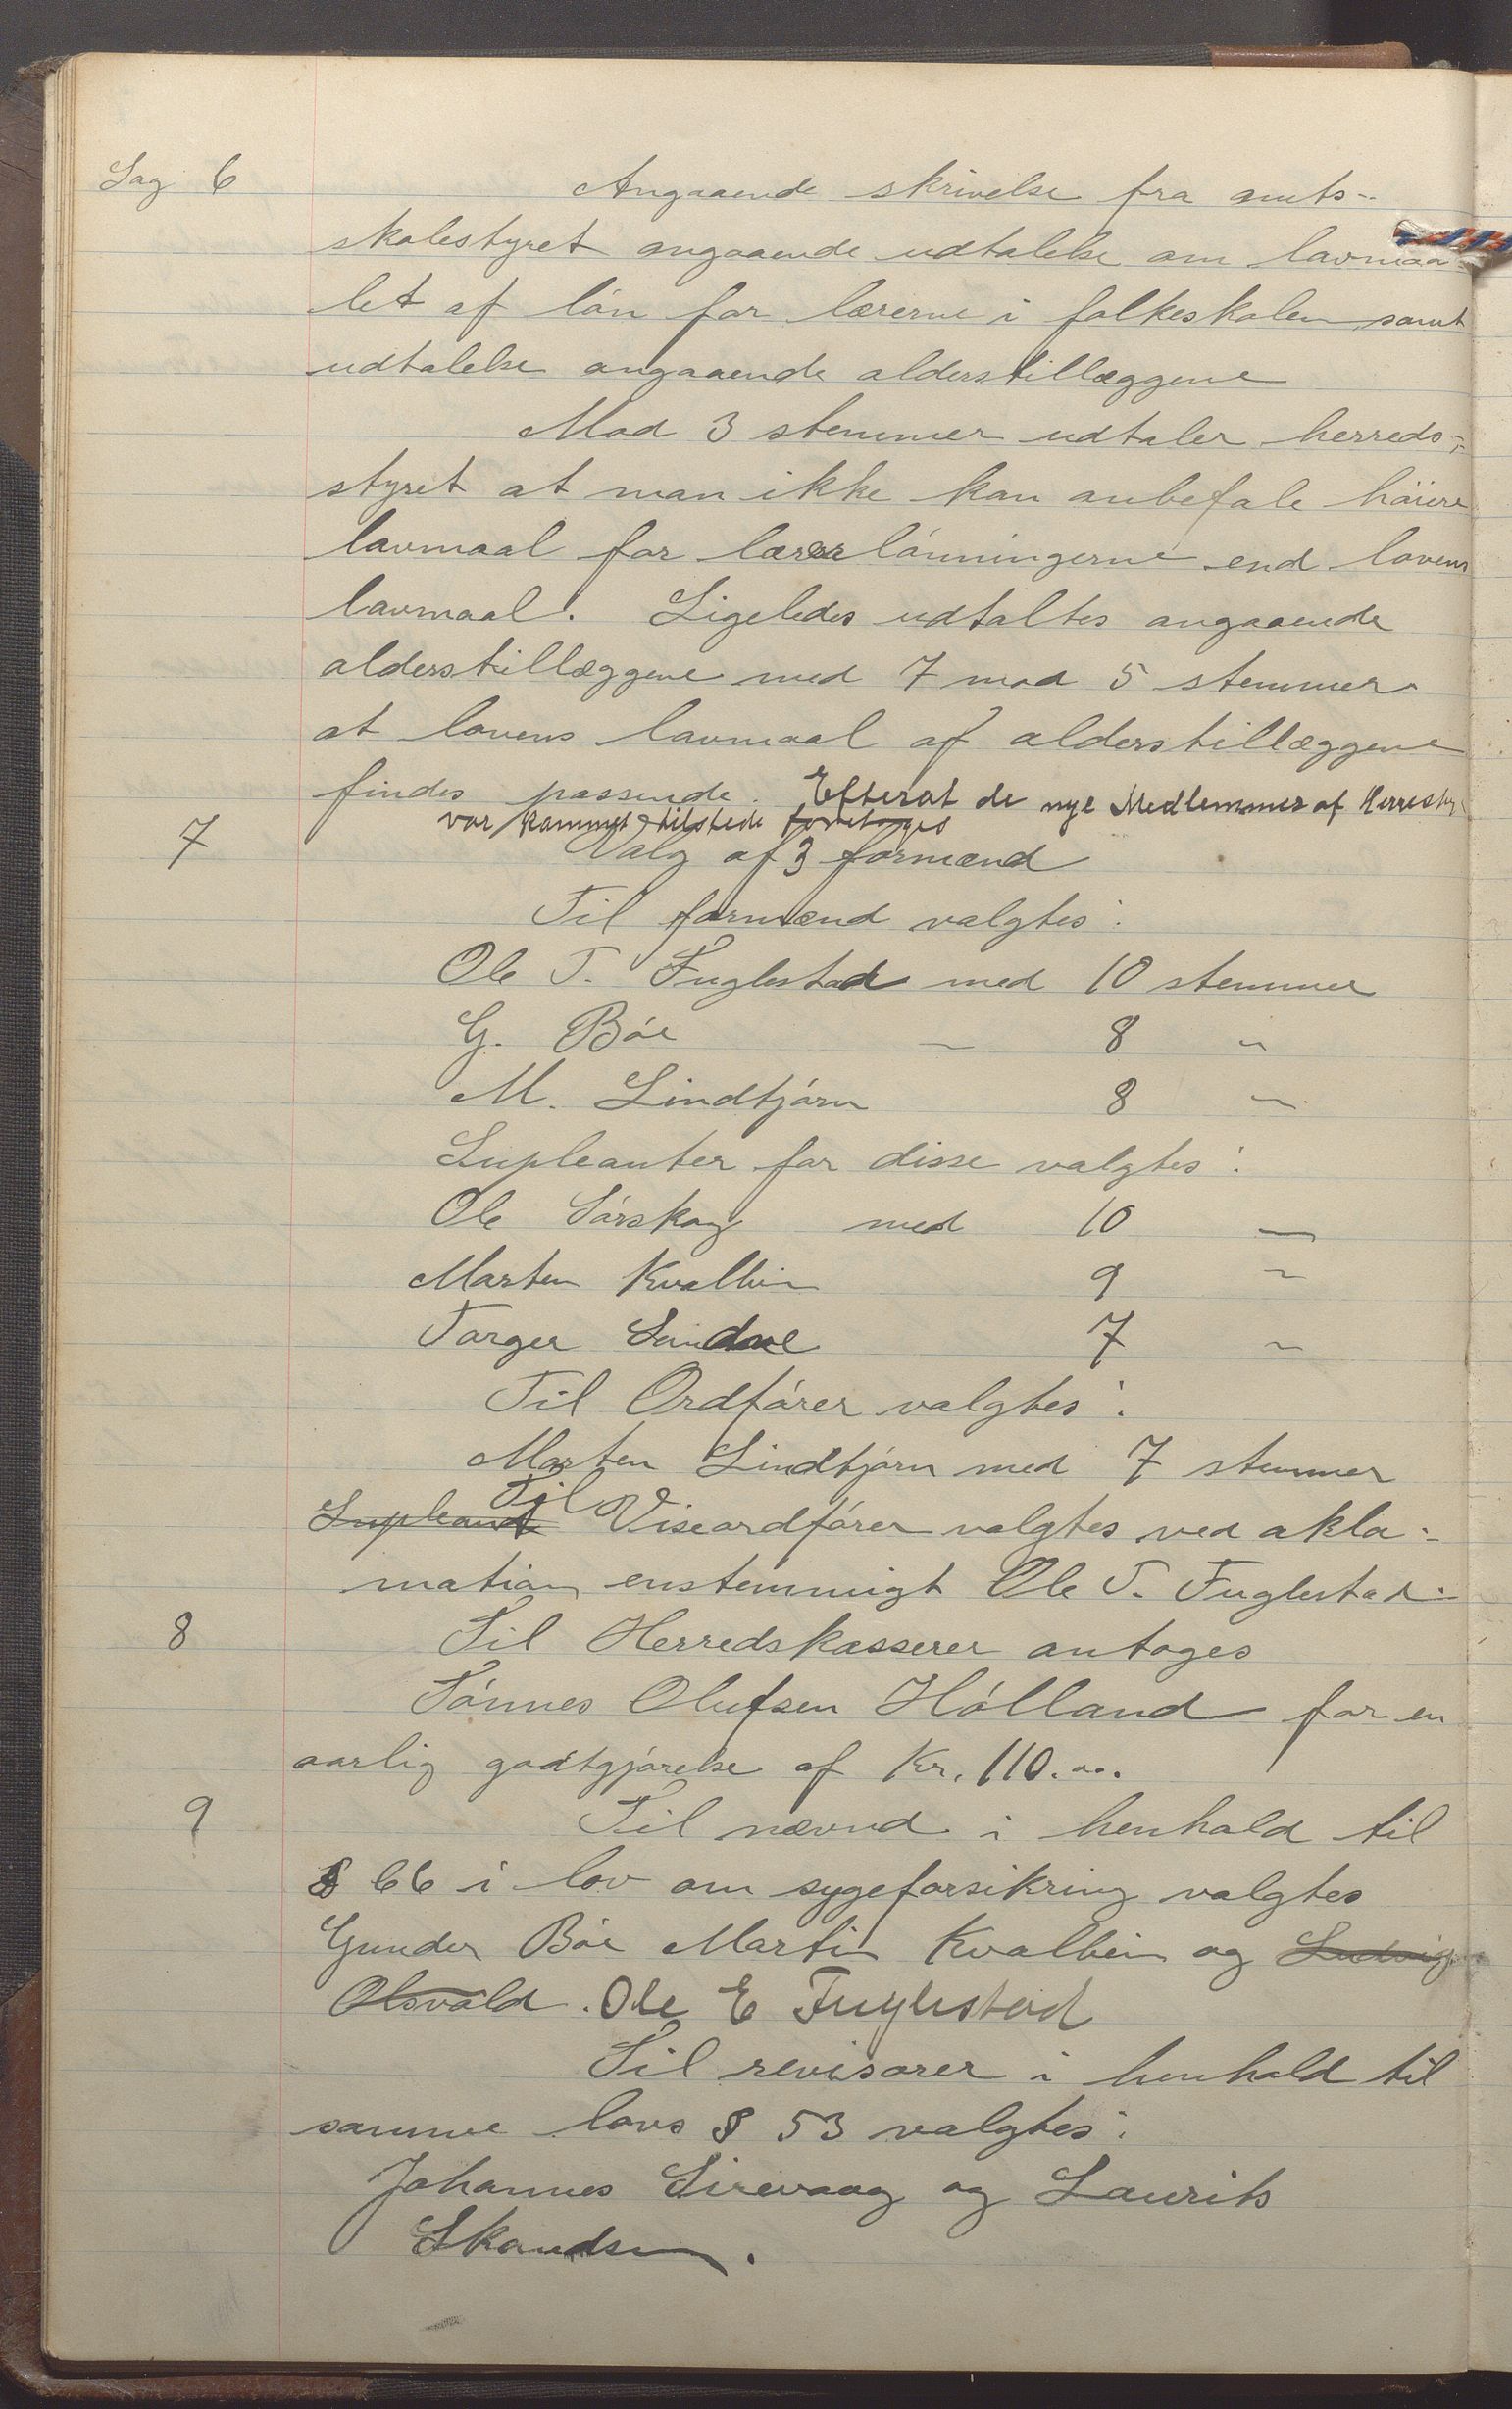 Sag 6 Angaaende skrivelse fra amts-
skolestyret angaaende udtalelse om lavmaa-
let af løn for lærerne i folkeskolen samt
udtalelse angaaende alderstillæggene
Mod 3 stemmer udtaler herreds-
styret at man ikke kan anbefale høiere
lavmaal for lærerlønningerne end lovens
lavmaal. Ligeledes udtaltes angaaende
alderstillæggene med 7 mod 5 stemmer
at lovens lavmaal af alderstillæggene
findes passende. Efterat de nye Medlemmer af Herresty
var kommet tilstede foretoges
7 Valg af 3 formænd
Til formænd valgtes:
Ole T. Fuglestad med 10 stemmer
G. Bøe — 8 "
M. Lindtjørn 8 "
Supleanter for disse valgtes:
Ole Sørskog med 10 —
Marten Kvalbein 9 "
Torger Sandve 7 "
Til Ordfører valgtes:
Morten Lindtjørn med 7 stemmer
Supleant Til Viseordfører valgtes ved akla-
mation enstemmigt Ole T. Fuglestad.
8 Til Herredskasserer antoges
Tønnes Olufsen Hølland for en
aarlig godtgjørelse af Kr. 110.00.
9 Til nævnd i henhold til
§ 66 i lov om sygeforsikring valgtes
Gunder Bøe Martin Kvalbein og Ludvig
Olsvold. Ole E Fuglestad
Til revisorer i henhold til
samme lovs § 53 valgtes:
Johannes Sirevaag og Laurits
Skandsen.